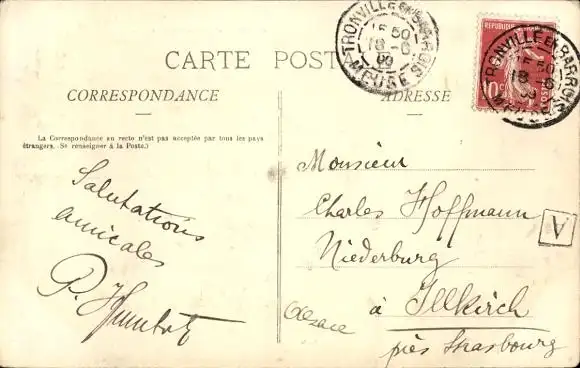 CARTE POSTALE
TRONVILLE EN BARROIS
15 50
18 -6
09
MEUSE
TRONVILLE EN BARROIS
15 50
18 -6
MEUSE
10c
CORRESPONDANCE
ADRESSE
La Correspondance au recto n'est pas acceptée par tous les pays
étrangers. (Se renseigner à la Poste.)
Salutations
amicales
P. Humbert
Monsieur
Charles Hoffmann
A
Niederburg
à Illkirch
Alsace
près Strasbourg